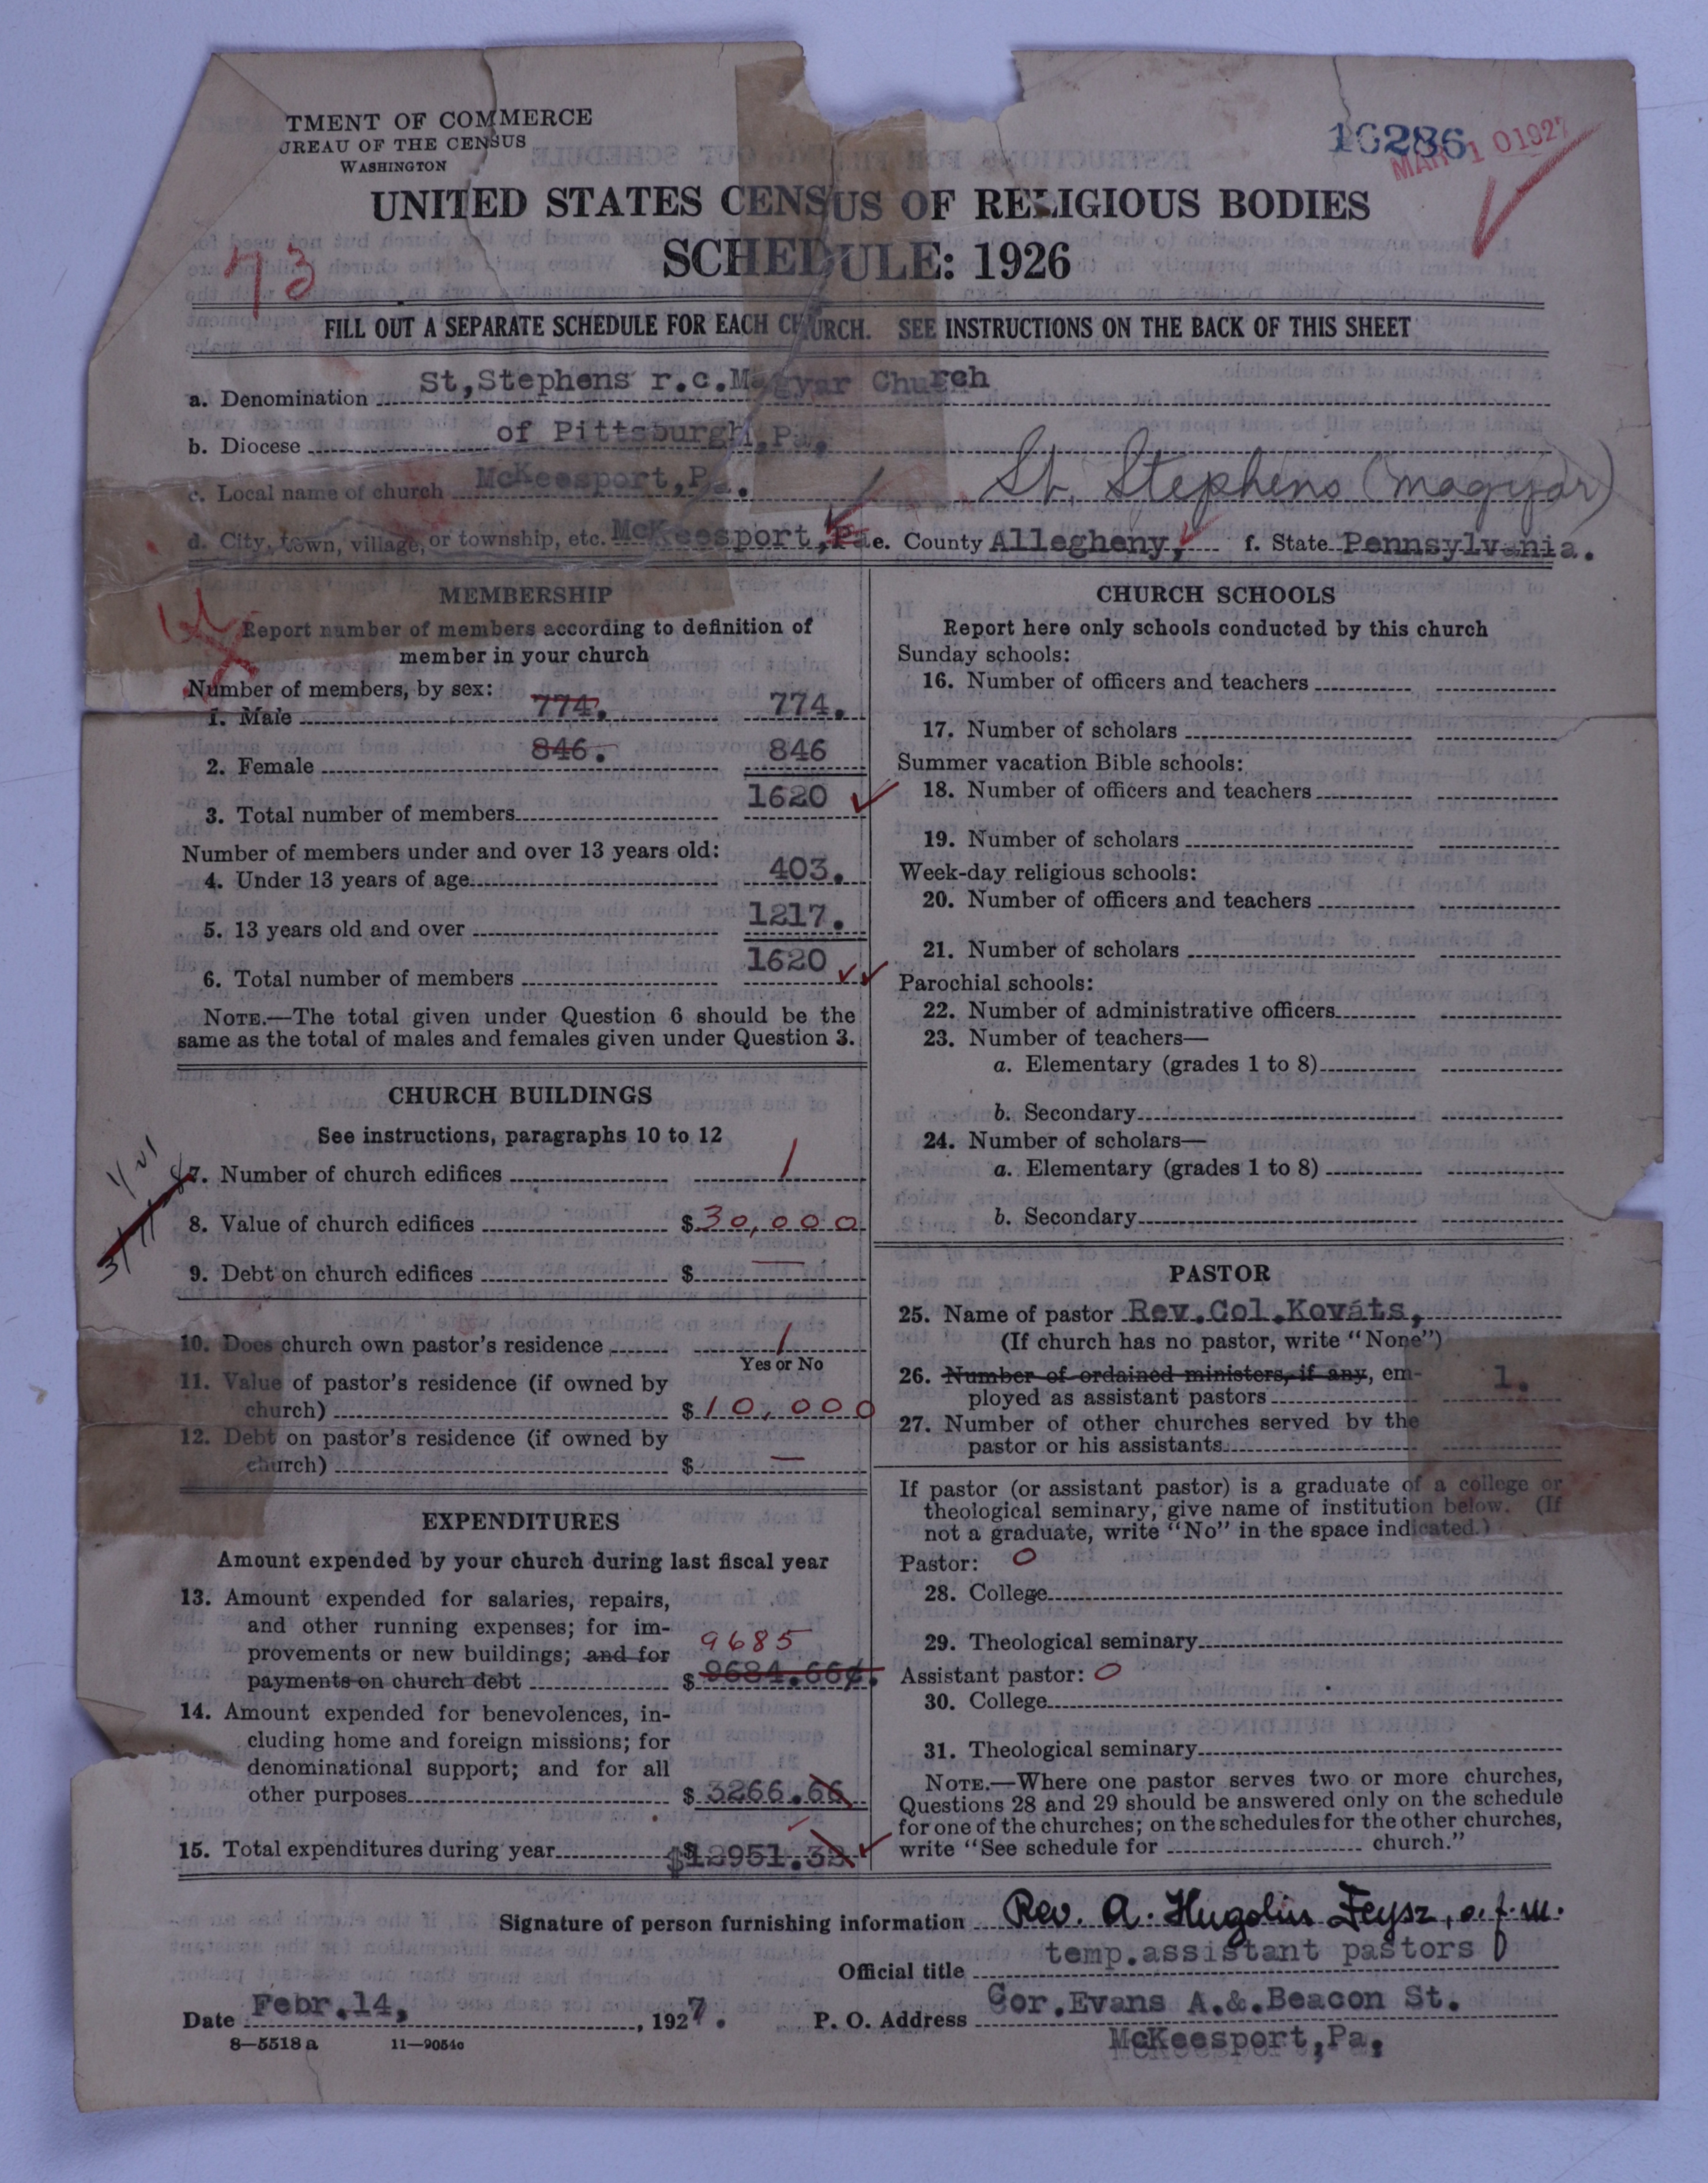 TMENT OF COMMERCE
UREAU OF THE CENSUS
WASHINGTON
16286
MAR 10 1927
UNITED STATES CENSUS OF RELIGIOUS BODIES
SCHEDULE: 1926
73
FILL OUT A SEPARATE SCHEDULE FOR EACH CHURCH. SEE INSTRUCTIONS ON THE BACK OF THIS SHEET
a. Denomination St,Stephens r.c.Magyar Church
b. Diocese of Pittsburgh,Pa,
c. Local name of church McKeesport,Pa. St. Stephens (magyar)
d. City, town, village, or township, etc. McKeesport,Pa e. County Allegheny, f. State Pennsylvania.
MEMBERSHIP
Report number of members according to definition of
member in your church
Number of members, by sex:
1. Male 774. 774.
2. Female 846. 846
3. Total number of members 1620
Number of members under and over 13 years old:
4. Under 13 years of age 403.
5. 13 years old and over 1217.
6. Total number of members 1620
NOTE.—The total given under Question 6 should be the
same as the total of males and females given under Question 3.
CHURCH BUILDINGS
See instructions, paragraphs 10 to 12
7. Number of church edifices 1
8. Value of church edifices $30,000
9. Debt on church edifices $ —
10. Does church own pastor's residence 1
Yes or No
11. Value of pastor's residence (if owned by
church) $10,000
12. Debt on pastor's residence (if owned by
church) $ —
EXPENDITURES
Amount expended by your church during last fiscal year
13. Amount expended for salaries, repairs,
and other running expenses; for im-
provements or new buildings; and for 9685
payments on church debt $9684.66¢.
14. Amount expended for benevolences, in-
cluding home and foreign missions; for
denominational support; and for all
other purposes $3266.66
15. Total expenditures during year $12951.32
CHURCH SCHOOLS
Report here only schools conducted by this church
Sunday schools:
16. Number of officers and teachers
17. Number of scholars
Summer vacation Bible schools:
18. Number of officers and teachers
19. Number of scholars
Week-day religious schools:
20. Number of officers and teachers
21. Number of scholars
Parochial schools:
22. Number of administrative officers
23. Number of teachers—
a. Elementary (grades 1 to 8)
b. Secondary
24. Number of scholars—
a. Elementary (grades 1 to 8)
b. Secondary
PASTOR
25. Name of pastor Rev.Col.Kováts,
(If church has no pastor, write "None")
26. Number of ordained ministers, if any, em-
ployed as assistant pastors 1.
27. Number of other churches served by the
pastor or his assistants
If pastor (or assistant pastor) is a graduate of a college or
theological seminary, give name of institution below. (If
not a graduate, write "No" in the space indicated.)
Pastor: O
28. College
29. Theological seminary
Assistant pastor: O
30. College
31. Theological seminary
NOTE.—Where one pastor serves two or more churches,
Questions 28 and 29 should be answered only on the schedule
for one of the churches; on the schedules for the other churches,
write "See schedule for church."
Signature of person furnishing information Rev. A. Hugolin Feysz, o.f.m.
Official title temp.assistant pastors
Date Febr.14, , 1927. P. O. Address Cor.Evans A.&.Beacon St.
McKeesport,Pa,
8—5518 a 11—9054c